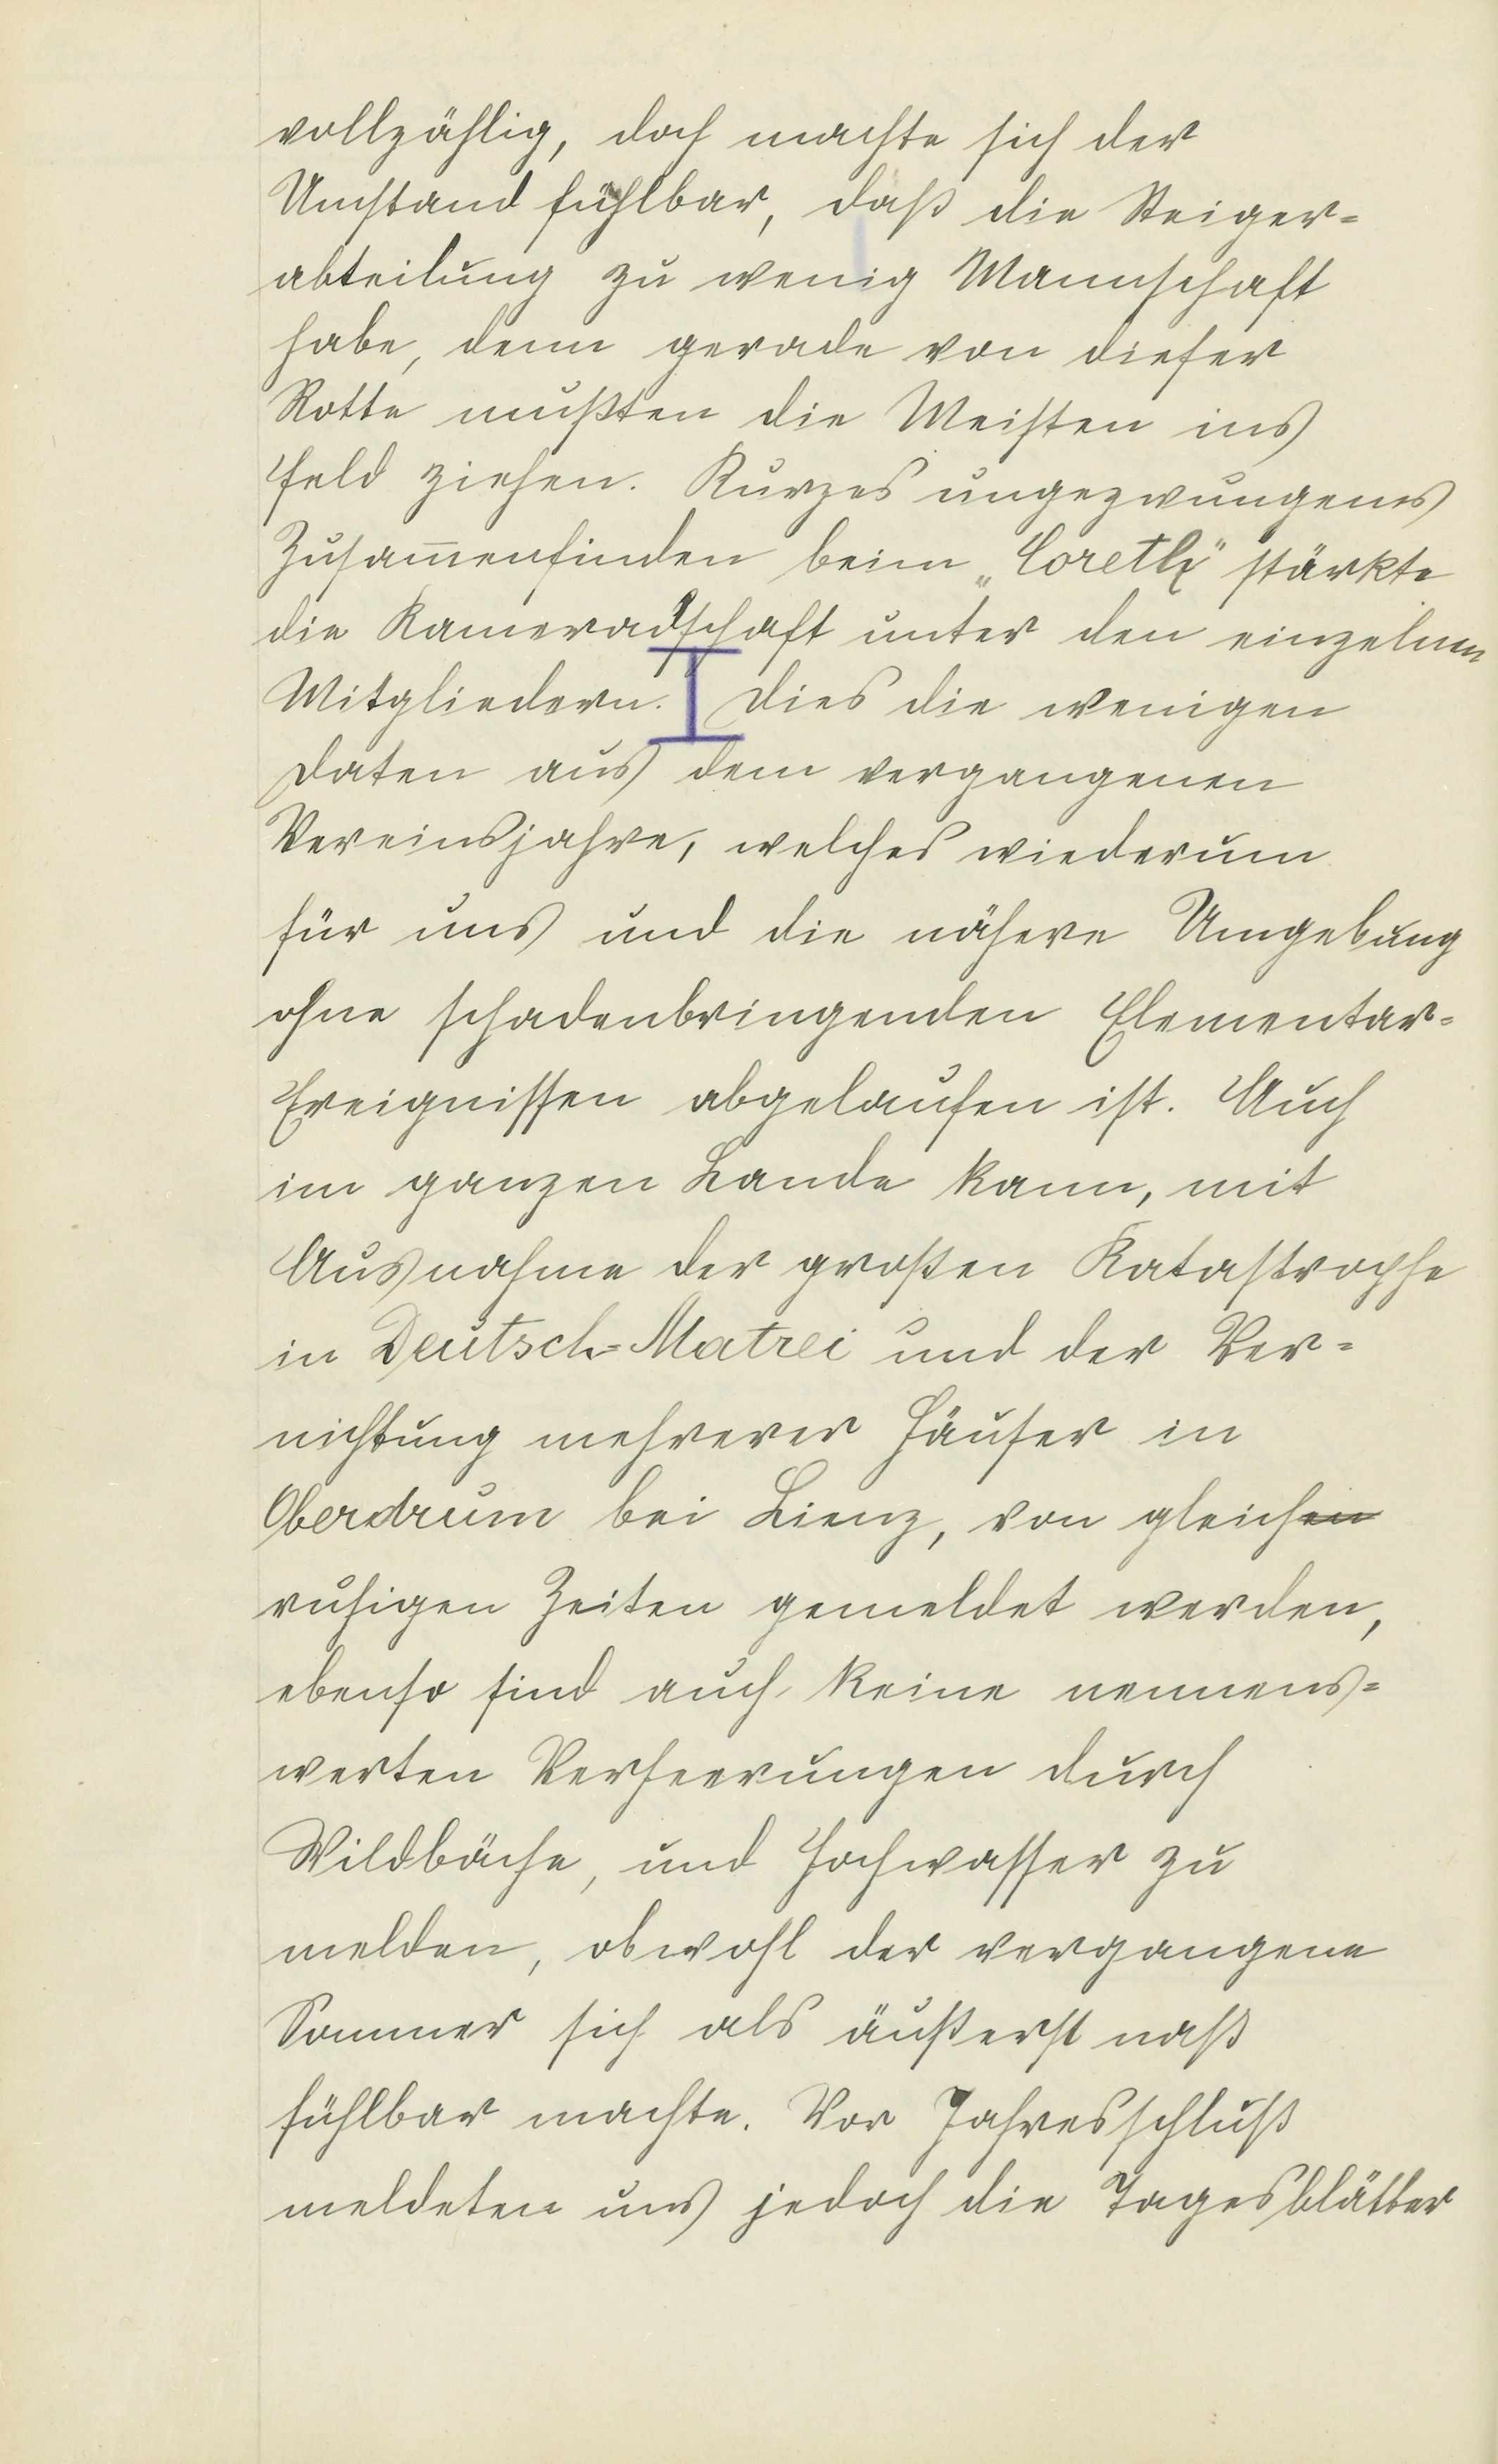 vollzählig, doch machte sich der
Umstand fühlbar, daß die Steiger=
abteilung zu wenig Mannschaft
habe, denn gerade von dieser
Rotte mußten die Meisten ins
Feld ziehen. Kurzes ungezwungenes
Zusam̅enfinden beim „Coreth“ stärkte
die Kameradschaft unter den einzelnen
Mitgliedern. Dies die wenigen
Daten aus dem vergangenen
Vereinsjahre, welches wiederum
für uns und die nähere Umgebung
ohne schadenbringenden Elementar=
Ereignissen abgelaufen ist. Auch
im ganzen Lande kann, mit
Ausnahme der großen Katastrophe
in Deutsch=Matrei und der Ver=
nichtung mehrerer Häuser in
Oberdrum bei Lienz, von gleichen
ruhigen Zeiten gemeldet werden,
ebenso sind auch keine nennens=
werten Verheerungen durch
Wildbäche, und Hochwasser zu
melden, obwohl der vergangene
Sommer sich als äußerst naß
fühlbar machte. Vor Jahresschluß
meldeten uns jedoch die Tagesblätter